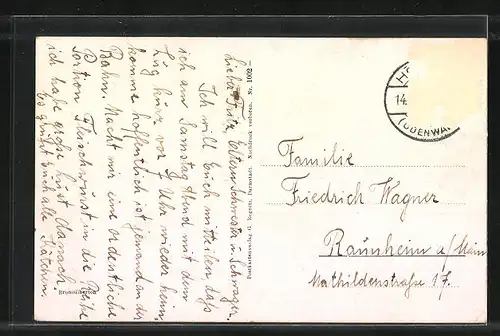 Liebe Fritz, Eltern Schwester u. Schwager.
Ich will Euch mitteilen daß
ich am Samstag Abend mit dem
Zug kurz vor 9 Uhr wieder heim
komme hoffentlich ist jemand an der
Bahn. Macht mir eine ordentliche
Portion Fleischwurst in die Reihe
ich habe große Lust danach
Es grüßt Euch alle Käthchen
Postkartenverlag G. Rognitz, Darmstadt. Nachdruck verboten. Nr. 1002
14.
(ODENWA
Familie
Friedrich Wagner
Raunheim a/Main
Mathildenstraße 17.